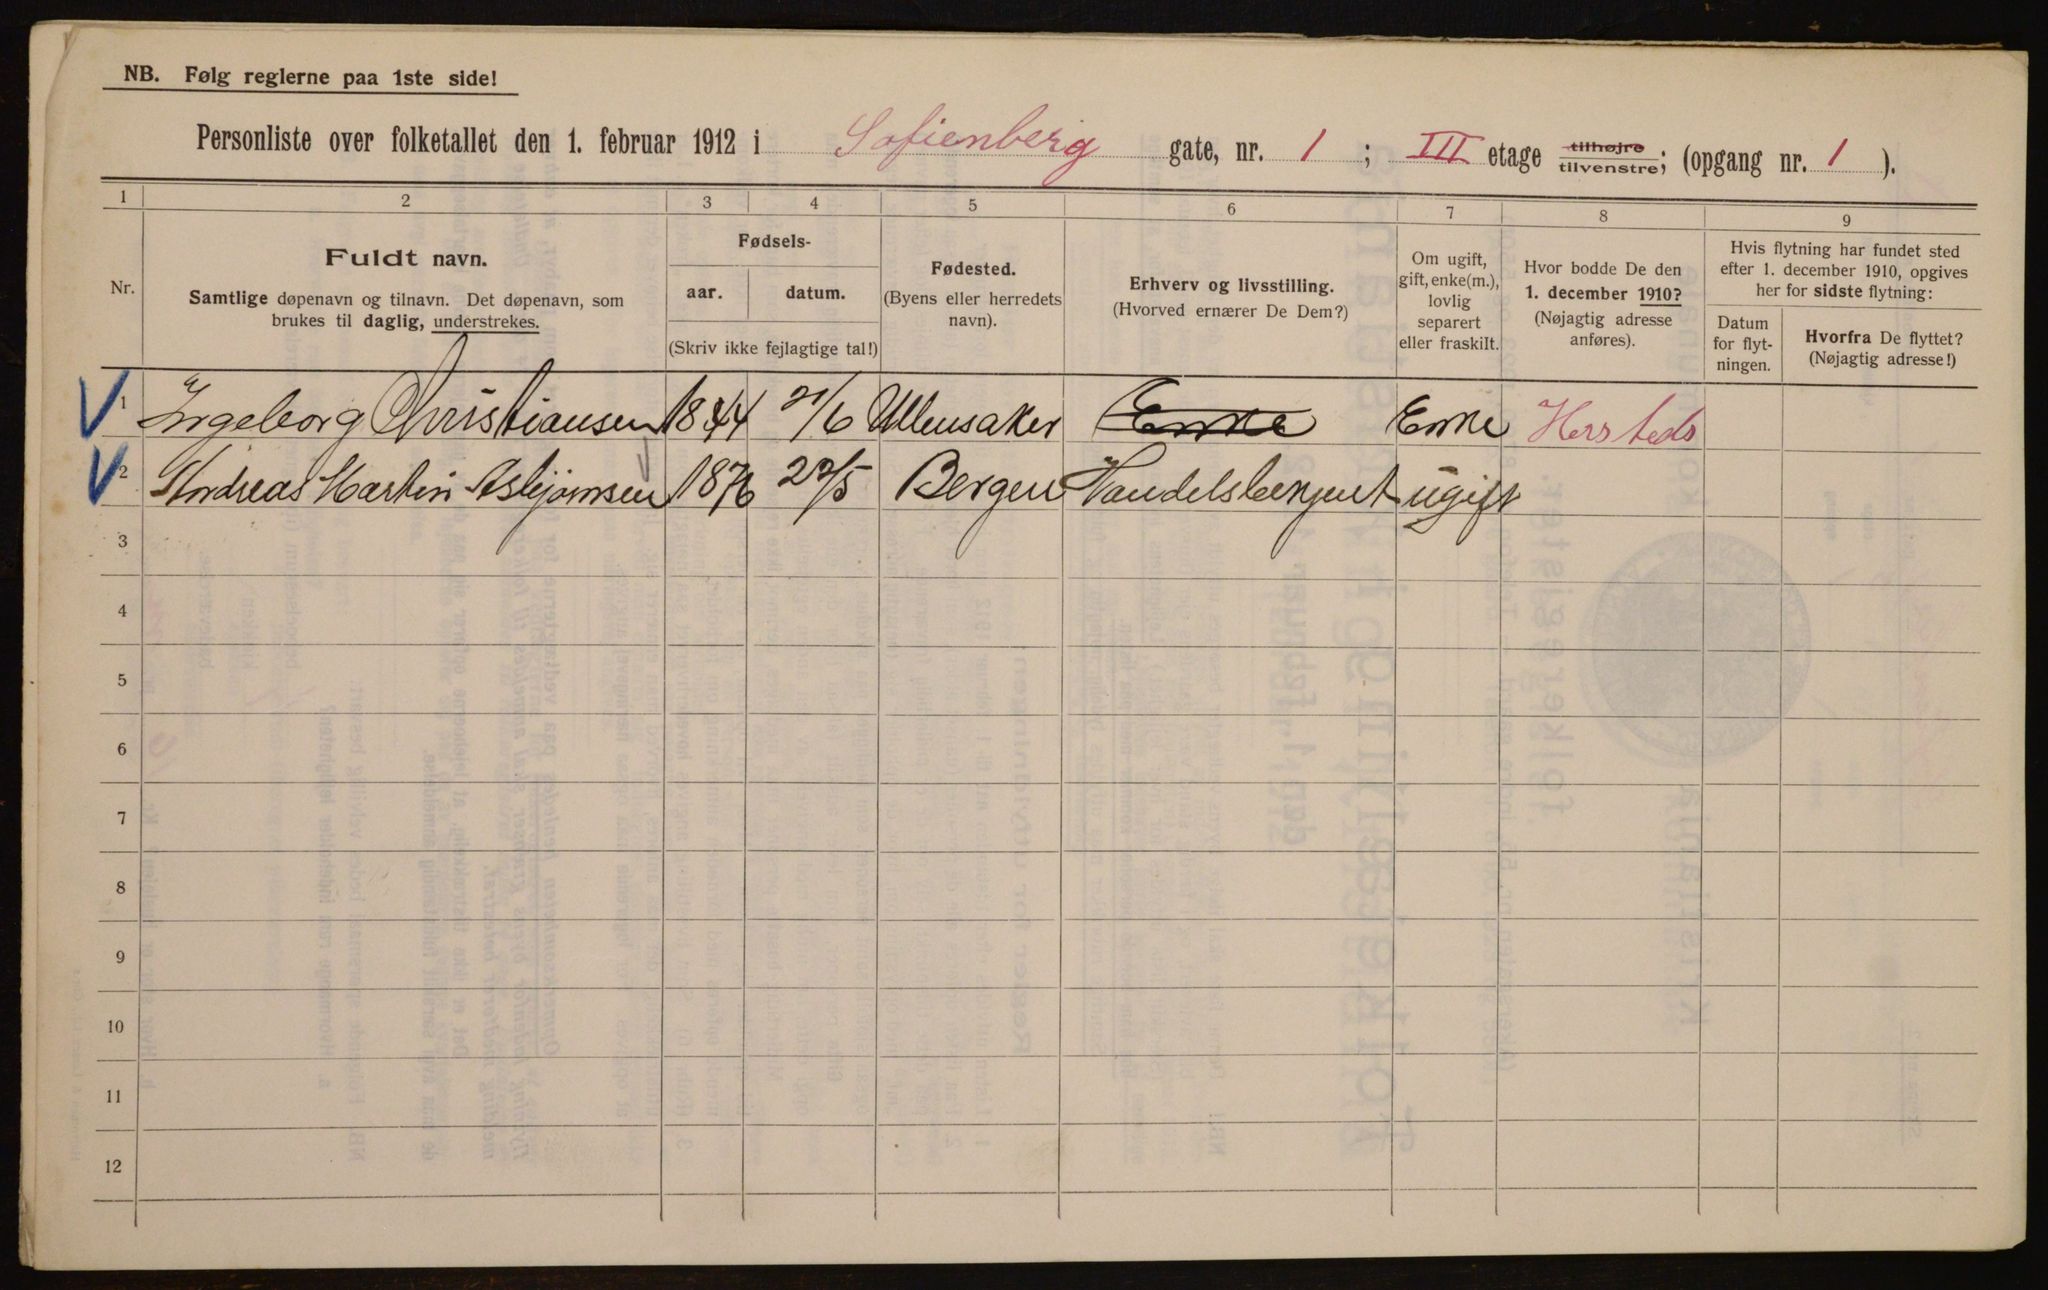 NB. Følg reglerne paa 1ste side!
Personliste over folketallet den 1. februar 1912 i Sofienberg gate, nr. 1; III etage tilhøjre/tilvenstre; (opgang nr. 1).
1 2 3 4 5 6 7 8 9
Nr.
Fuldt navn.
Samtlige døpenavn og tilnavn. Det døpenavn, som
brukes til daglig, understrekes.
Fødsels-
aar. datum.
(Skriv ikke fejlagtige tal!)
Fødested.
(Byens eller herredets
navn).
Erhverv og livsstilling.
(Hvorved ernærer De Dem?)
Om ugift,
gift, enke(m.),
lovlig
separert
eller fraskilt.
Hvor bodde De den
1. december 1910?
(Nøjagtig adresse
anføres).
Hvis flytning har fundet sted
efter 1. december 1910, opgives
her for sidste flytning:
Datum
for flyt-
ningen.
Hvorfra De flyttet?
(Nøjagtig adresse!)
1 Ingeborg Christiansen 1844 21/6 Ullensaker Enke Enke Hersteds
2 Andreas Martin Asbjørnsen 1876 22/5 Bergen Handelsbetjent ugift
3
4
5
6
7
8
9
10
11
12